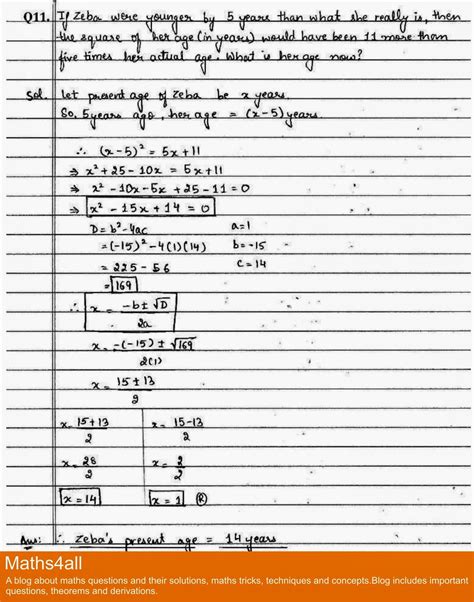 Q11. If Zeba were younger by 5 years than what she really is, then
the square of her age (in years) would have been 11 more than
five times her actual age. What is her age now?
Sol. Let present age of Zeba be x years.
So, 5 years ago, her age = (x-5) years.
∴ (x-5)² = 5x+11
⇒ x²+25-10x = 5x+11
⇒ x²-10x-5x+25-11=0
⇒ x²-15x+14=0
D=b²-4ac a=1
=(-15)²-4(1)(14) b=-15
=225-56 c=14
=169
∴ x = -b±√D / 2a
x = -(-15)±√169 / 2(1)
x = 15±13 / 2
x = 15+13 / 2 x = 15-13 / 2
x = 28 / 2 x = 2 / 2
x=14 x=1 (R)
Ans: ∴ Zeba's present age = 14 years
Maths4all
A blog about maths questions and their solutions, maths tricks, techniques and concepts.Blog includes important
questions, theorems and derivations.